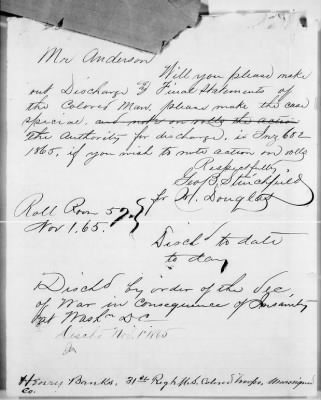 Mr Anderson
Will you please make
out Discharge & Final Statements of
the Colored Man, please make the case
special, and note on rolls the action
The Authority for discharge, is Inq 602
1865, if you wish to note action on rolls
Respectfully
Geo B. Stinchfield
for M. Douglas
Roll Room 57
Nov 1. 65.
Disch'd to date
to day
Disch'd by order of the Sec
of War in Consequence of Insanity
at Wash. D.C
Disch'd Nov 1st 1865
Henry Banks, 31st Regt. U.S. Colored Troops, Unassigned
Co.